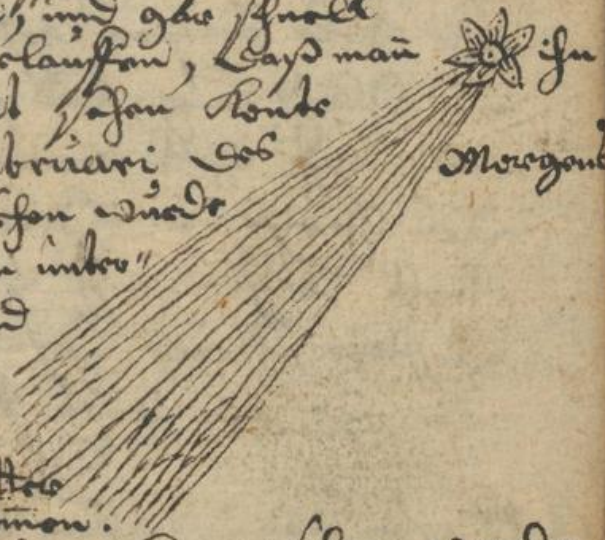 und gar schnell
gelauffen, daß man̄ ihn
sehen konte
bruari des
Morgens
sehen wurde
unter"
d
tter
men.